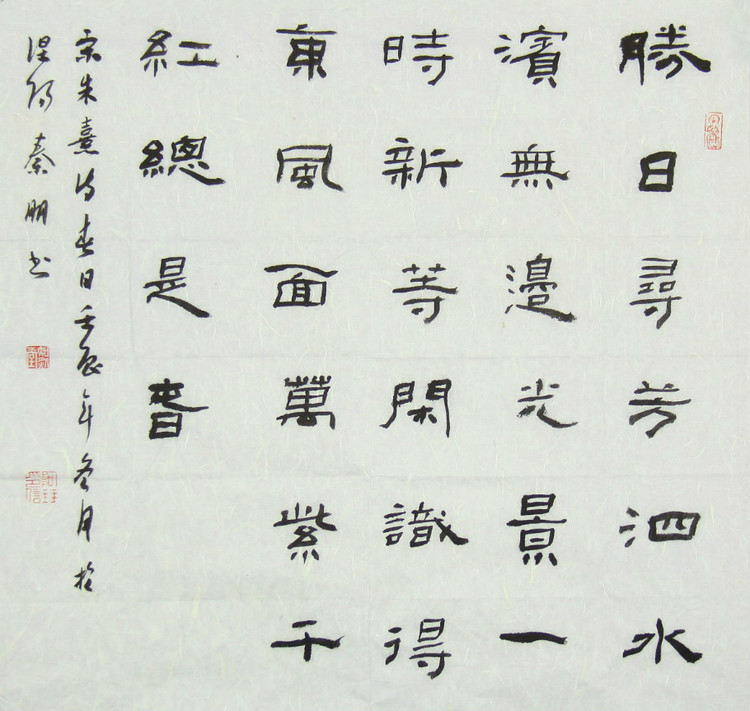 勝日尋芳泗水
濱無邊光景一
時新等閑識得
東風面萬紫千
紅總是春
宋朱熹诗春日壬辰年冬月於
涅阳秦朋书